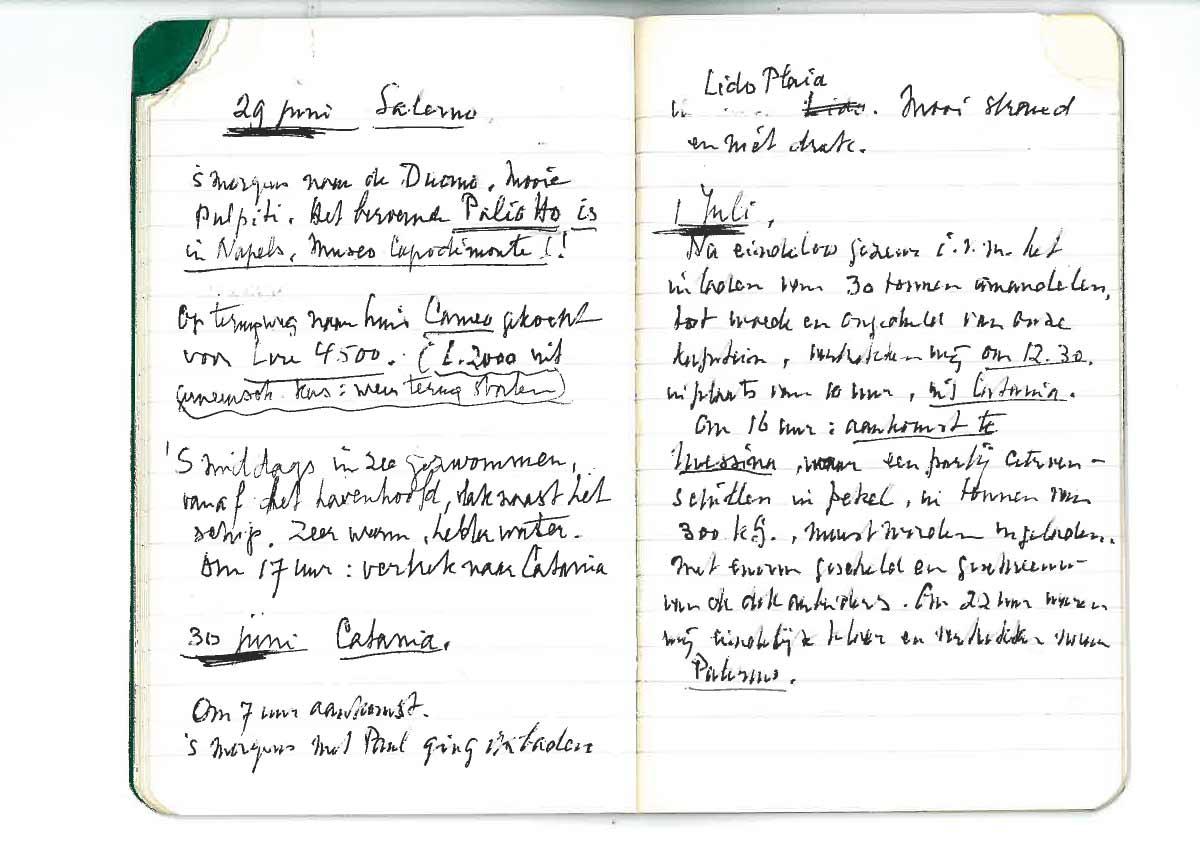 29 juni Salerno
's morgens naar de Duomo. Mooie
pulpiti. Het beroemde Paliotto is
in Napels, Museo Capodimonte!!
Op terugweg naar huis Cameo gekocht
voor Lire 4500. (£.2000 uit
gemeensch. kas: weer terug storten)
's middags in zee gezwommen,
vanaf het havenhoofd, vlak naast het
schip. Zeer warm, helder water.
Om 17 uur: vertrek naar Catania
30 juni Catania.
Om 7 uur aankomst.
's morgens met Paul ging baden
Lido Plaia
in Lido. Mooi strand
en niet druk.
1 Juli,
Na eindeloos gezeur i.v.m. het
inladen van 30 tonnen amandelen,
tot woede en ongeduld van onze
kapitein, vertrekken wij om 12.30.
in plaats van 10 uur, uit Catania.
Om 16 uur: aankomst te
Messina, waar een partij citroen-
schillen in pekel, in tonnen van
300 k.g., moest worden ingeladen.
Met enorm gescheld en geschreeuw
van de dokarbeiders. Om 22 uur waren
wij eindelijk klaar en vertrokken naar
Palermo.